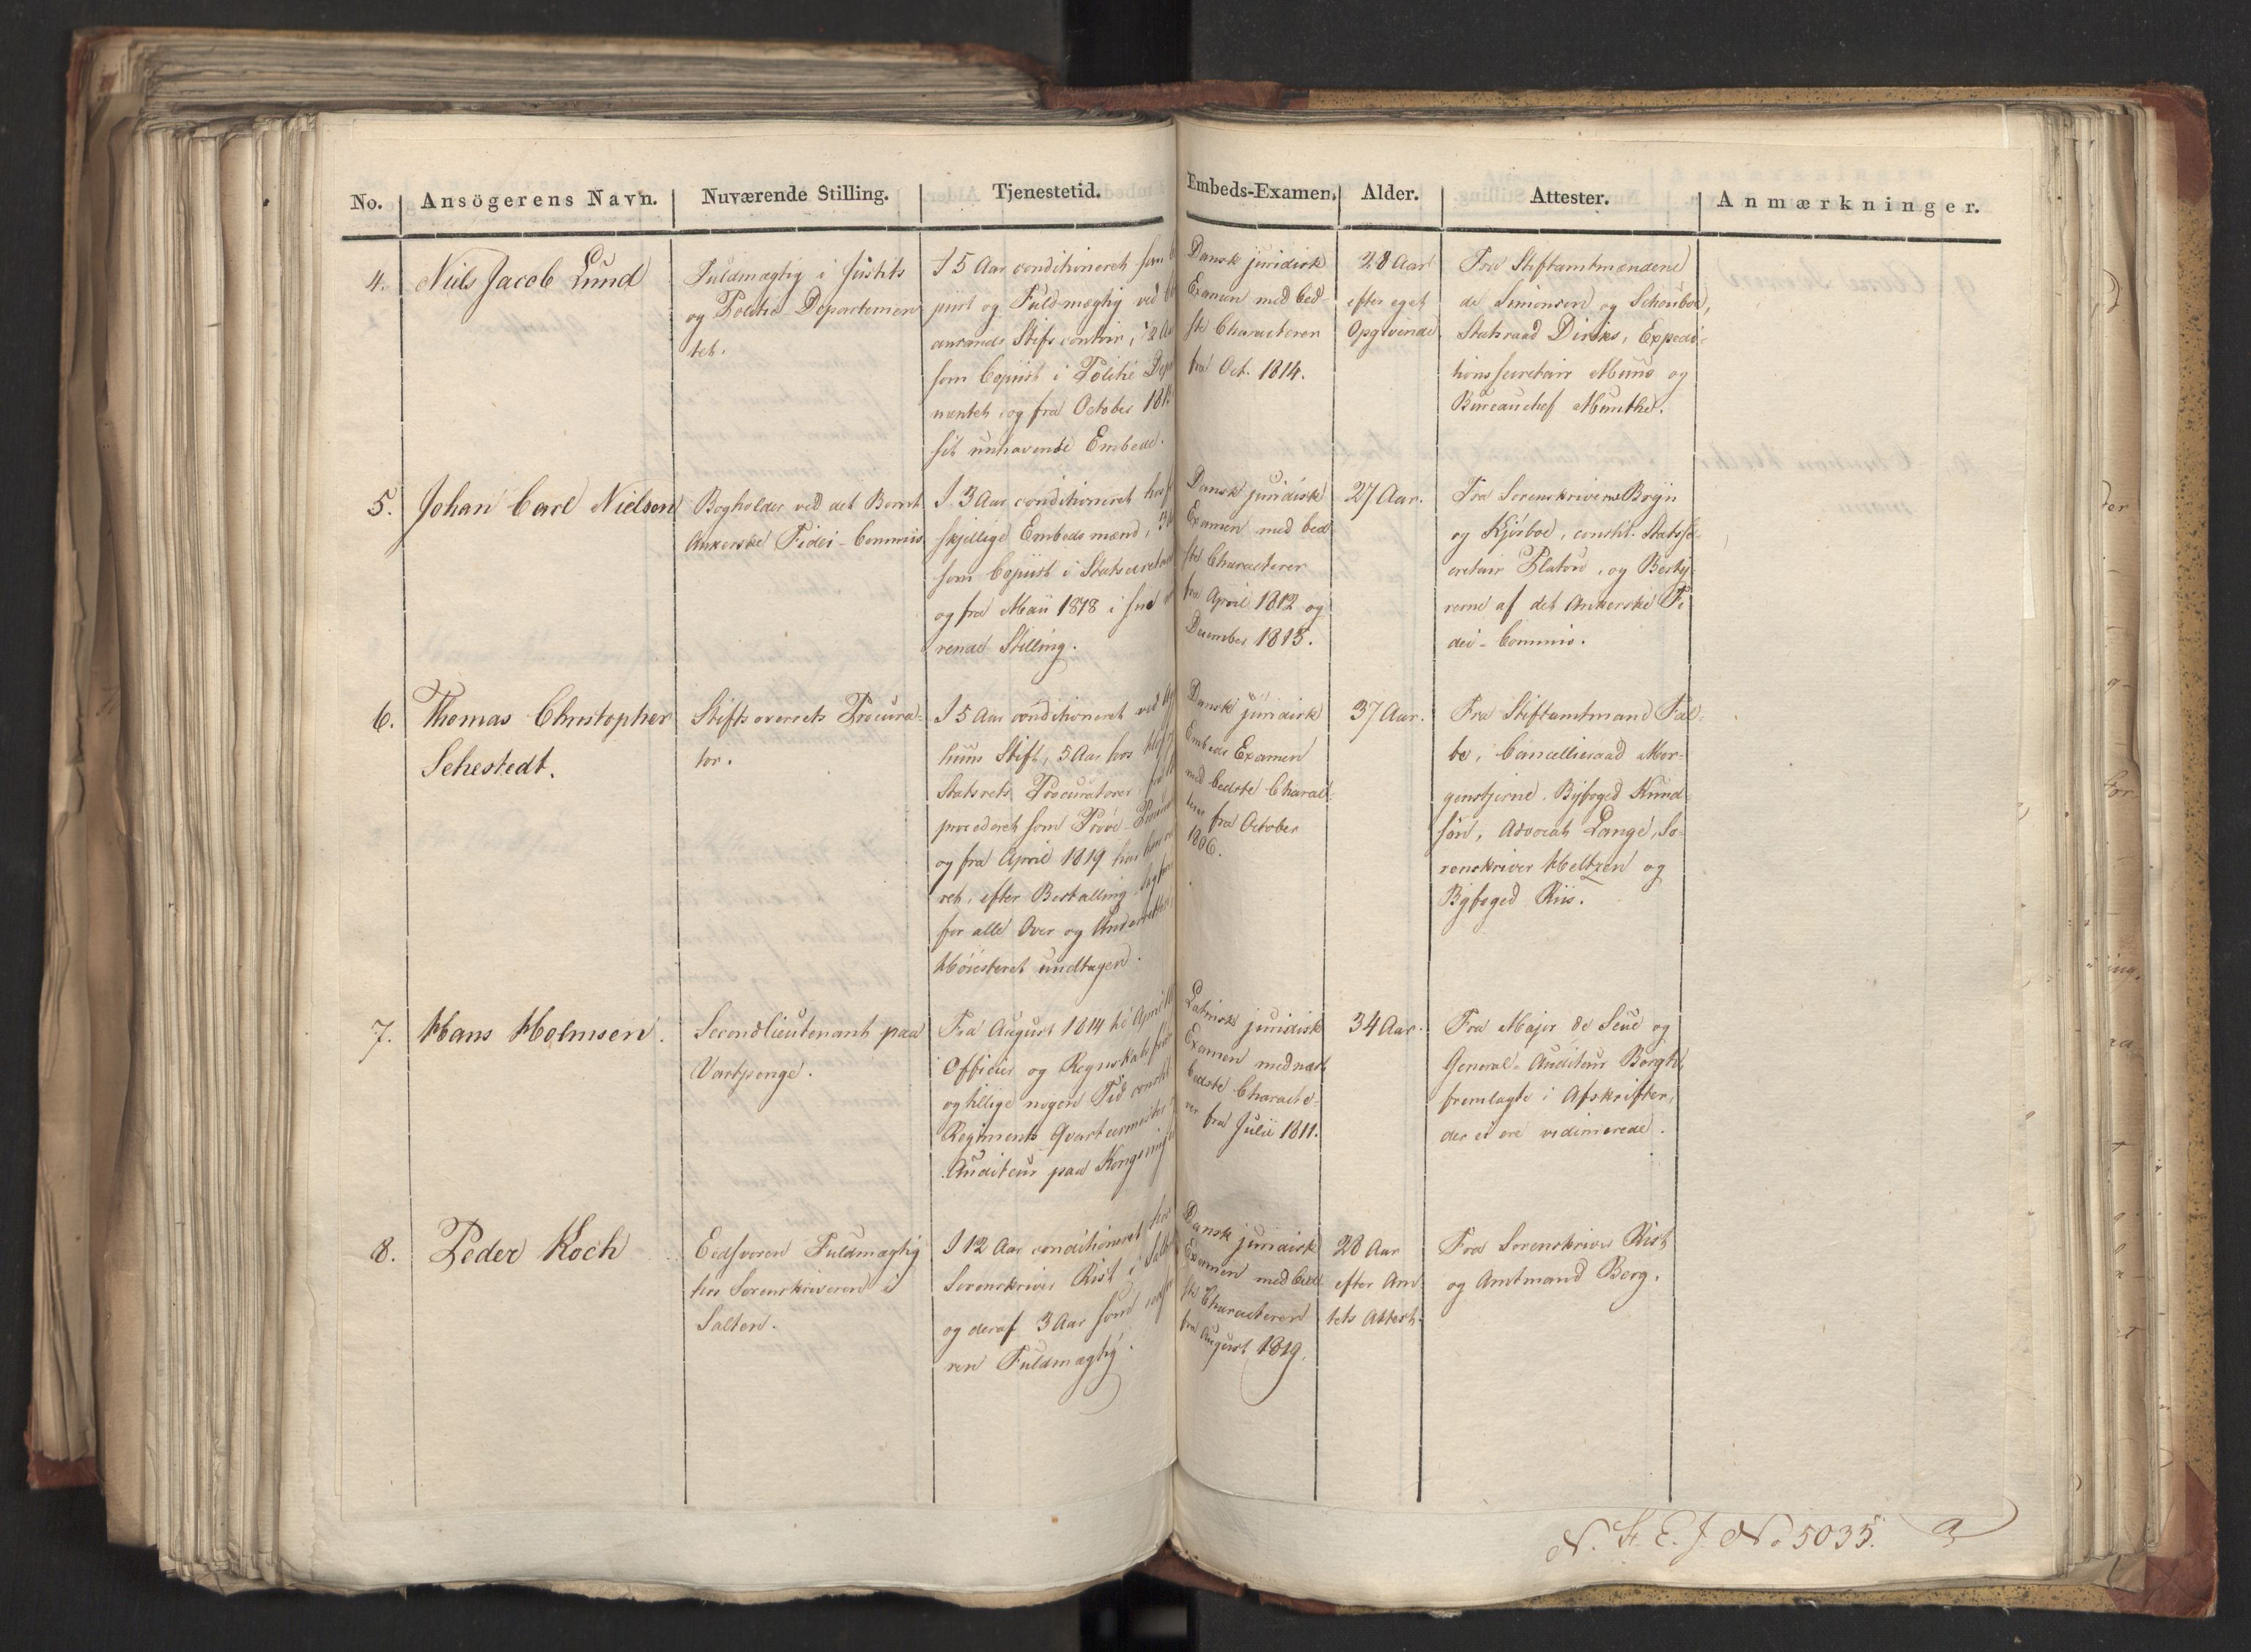 No. Ansögerens Navn. Nuværende Stilling. Tjenestetid. Embeds-Examen. Alder. Attester. Anmærkninger.
4. Niels Jacob Lund
Fuldmægtig i Justits
og Politie-Departemen
tet.
I 5 Aar conditioneret som
piist og Fuldmægtig ved
ansands Stifts contoir, 2
som Copiist i Politie Dep
mentet, og fra October 181
sit innhavende Embede.
Dansk juridisk
Examen med bed-
ste Characterer
fra Oct. 1814.
28 Aar
efter eget
Opgivende.
Fra Stiftamtmændene
de Simonsen og Schouboe,
Statsraad Diriks, Expedi-
tionssecretair Munc og
Bureauchef Munthe.
5. Johan Carl Nielsen
Bogholder ved det Bernt
Ankerske Fidei-Commis
I 3 Aar conditioneret hos
skjellige Embedsmænd, 3
som Copiist i Statssecretar
og fra Maii 1818 i sin
rende Stilling.
Dansk juridisk
Examen med bed
ste Characterer
fra April 1812 og
December 1815.
27 Aar.
Fra Sorenskriverne Bryn
og Kjörboe, constit. Statsse-
cretair Platou, og Besty-
rerne af det Ankerske Fi
dei-Commis.
6. Thomas Christopher
Sehestedt.
Stiftsoverrets Procura-
tor.
I 5 Aar conditioneret ved
huus Stift, 5 Aar hos
Statsrets Procuratorer,
procederet som Pröve-
og fra April 1819 har
ret, efter Bestalling
for alle Over og Underretter,
Höiesteret undtagen.
Dansk juridisk
Embeds Examen
med bedste Charac-
terer fra October
1806.
37 Aar.
Fra Stiftamtmand Fal-
be, Cancellieraad Mor-
genstjerne, Byfoged Knud-
sön, Advocat Lange, So-
renskriver Heltzen og
Byfoged Riis.
7. Hans Holmsen.
Secondlieutenant paa
Vartpenge.
Fra August 1814 til April
Officier og Regnskabsför
og tillige nogen Tid constit
Regiments Qvarteermester
Auditeur paa Kongsvinger
Latinsk juridisk
Examen med næst
bedste Characte-
rer fra Julii 1811.
34 Aar.
Fra Major de Seue og
General-Auditeur Bergh,
fremlagte i Afskrifter,
der ei ere vidimerede.
8. Peder Koch
Eedsvoren Fuldmægtig
hos Sorenskriveren i
Salten.
I 12 Aar conditioneret hos
Sorenskriver Rist i Salten
og deraf 3 Aar som
ren Fuldmægtig.
Dansk juridisk
Examen med bed
ste Characterer
fra August 1819.
28 Aar
efter Am
tets Attest.
Fra Sorenskriver Rist
og Amtmand Berg.
N. St. E. J. No 5035. a